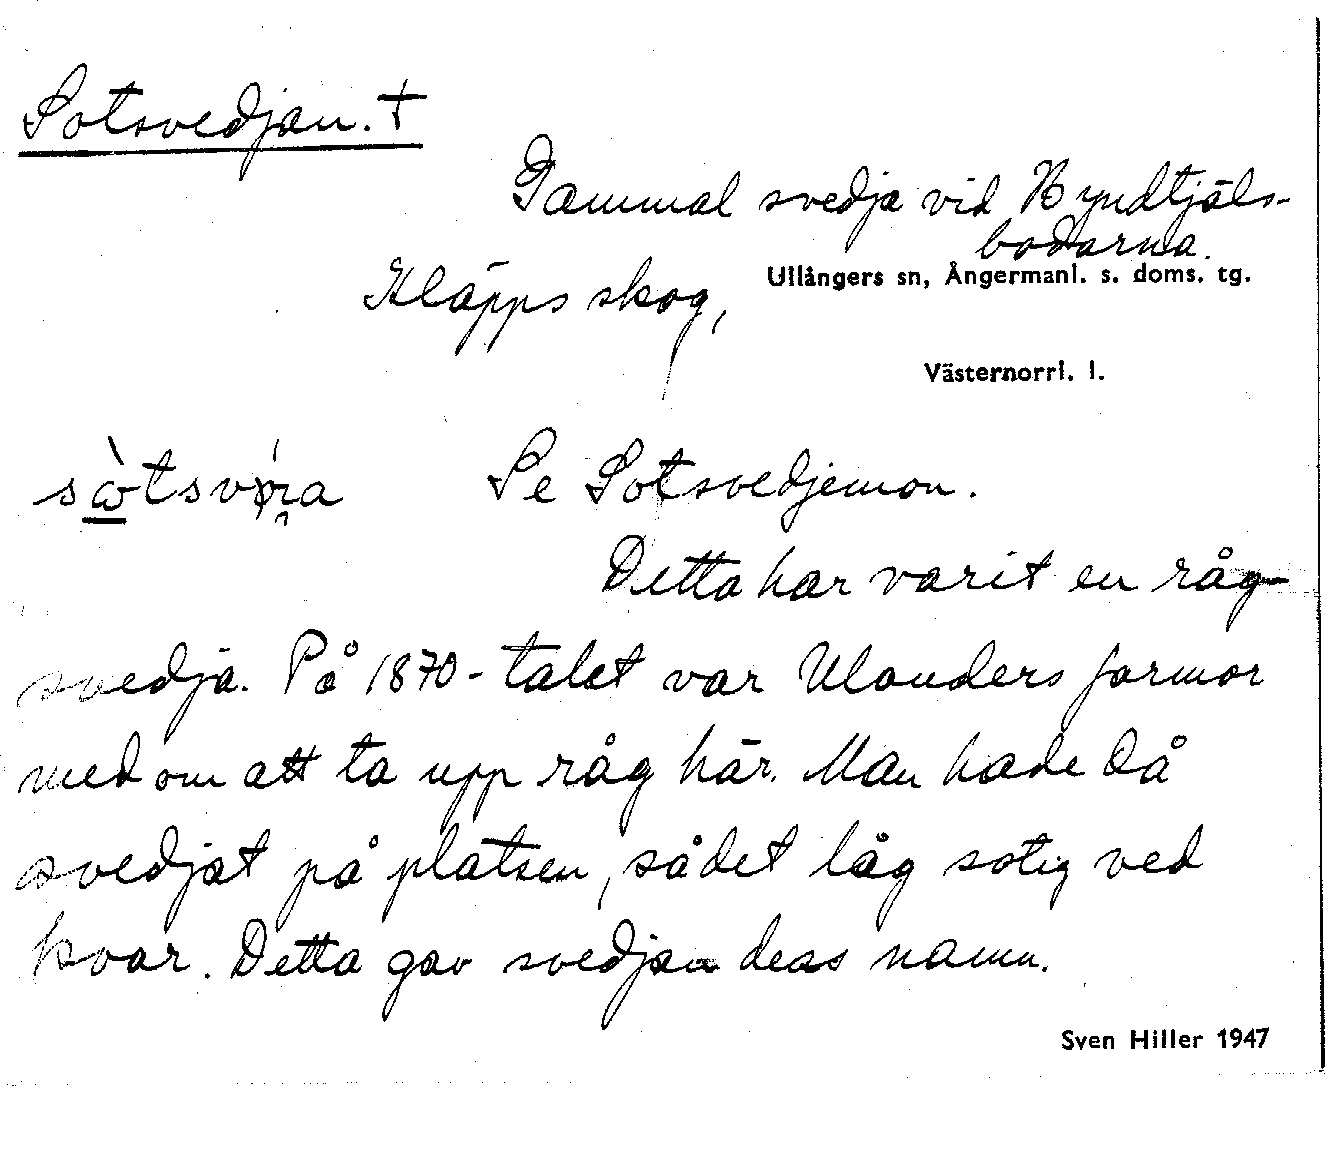 Sotsvedjan. †
Gammal svedja vid Kyndtjäls-
bodarna.
Kläpps skog,
Ullångers sn, Ångermanl. s. doms. tg.
Västernorrl. l.
Se Sotsvedjemon.
Detta har varit en råg-
svedja. På 1870-talet var Ulanders farmor
med om att ta upp råg här. Man hade då
svedjat på platsen, så det låg sotig ved
kvar. Detta gav svedjan dess namn.
Sven Hiller 1947